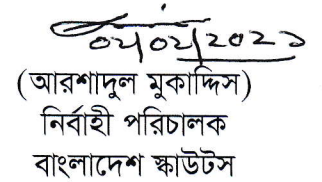 ০২/০২/২০২১
(আরশাদুল মুকাদ্দিস)
নির্বাহী পরিচালক
বাংলাদেশ স্কাউটস